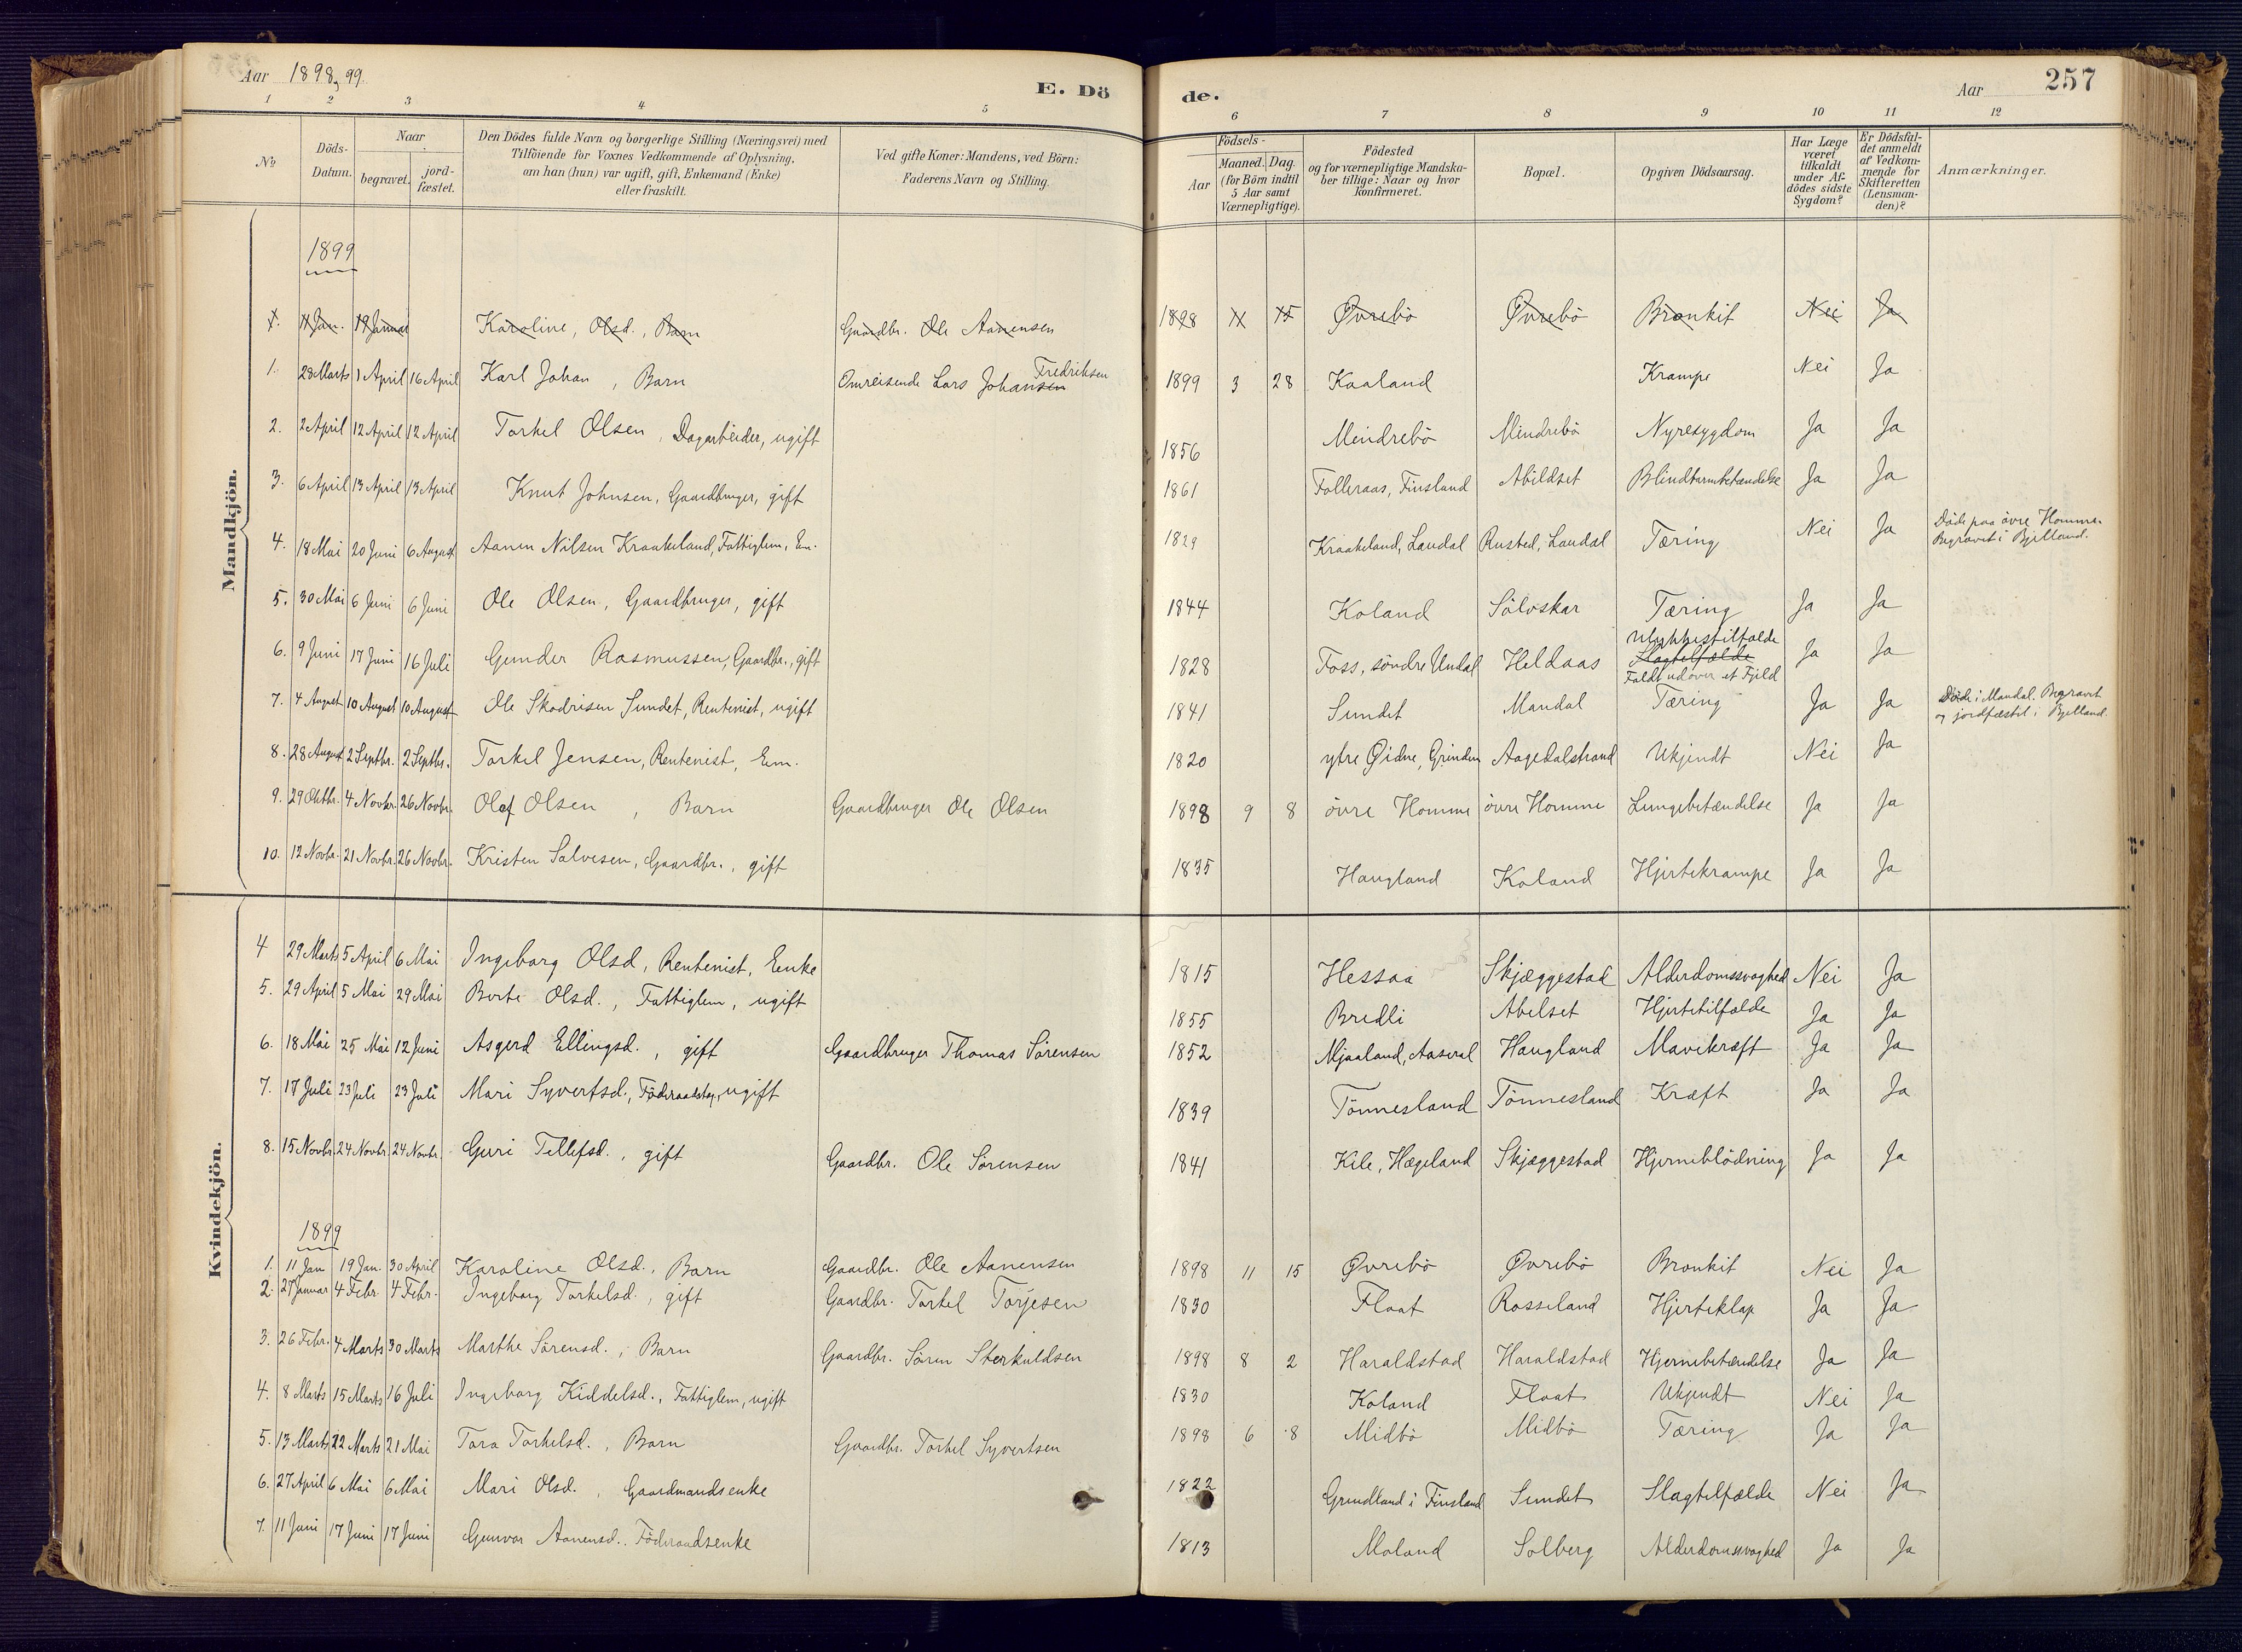 Aar 1898, 99.
E. Döde.
Aar
257
1 2 3 4 5 6 7 8 9 10 11 12
No.
Döds-Datum.
Naar
begravet.
jord-fæstet.
Den Dödes fulde Navn og borgerlige Stilling (Næringsvei) med
Tilföiende for Voxnes Vedkommende af Oplysning,
om han (hun) var ugift, gift, Enkemand (Enke)
eller fraskilt.
Ved gifte Koner: Mandens, ved Börn:
Faderens Navn og Stilling.
Födsels-
Aar
Maaned. Dag.
(for Börn indtil
5 Aar samt
Værnepligtige).
Födested
og for værnepligtige Mandska-
ber tillige: Naar og hvor
konfirmeret.
Bopæl.
Opgiven Dödsaarsag.
Har Læge
været
tilkaldt
under Af-
dödes sidste
Sygdom?
Er Dödsfal-
det anmeldt
af Vedkom-
mende for
Skifteretten
(Lensman-
den)?
Anmærkninger.
Mandkjön.
1899
1. 11 Jan. 19 Januar Karoline, Olsd., Barn Gaardbr. Ole Aanensen 1898 11 15 Øvrebö Øvrebö Bronkit Nei Ja
1. 28 Marts 1 April 16 April Karl Johan, Barn Omreisende Lars Johansen Fredriksen 1899 3 28 Kaaland Krampe Nei Ja
2. 2 April 12 April 12 April Torkel Olsen, Dagarbeider, ugift 1856 Mindrebö Mindrebö Nyresygdom Ja Ja
3. 6 April 13 April 13 April Knut Johnsen, Gaardbruger, gift 1861 Folleraas, Finsland Abildset Blindtarmbetændelse Ja Ja
4. 18 Mai 20 Juni 6 August Aanen Nilsen Kraakeland, Fattiglem, Em. 1829 Kraakeland, Laudal Rusted, Laudal Tæring Nei Ja Döde paa övre Homme. Begravet i Bjelland.
5. 30 Mai 6 Juni 6 Juni Ole Olsen, Gaardbruger, gift 1844 Koland Sölvskar Tæring Ja Ja
6. 9 Juni 17 Juni 16 Juli Gunder Rasmussen, Gaardbr., gift 1828 Foss, söndre Undal Heldaas Ulykkestilfælde Slagtilfælde Faldt udover et Fjeld Ja Ja
7. 4 August 10 August 10 August Ole Skodrisen Sundet, Rentenist, ugift 1841 Sundet Mandal Tæring Ja Ja Döde i Mandal. Begravet og jordfæstet i Bjelland.
8. 28 August 2 Septbr. 2 Septbr. Torkel Jensen, Rentenist, Em. 1820 ytre Øidne, Grindem Aagedalstrand Ukjendt Nei Ja
9. 29 Oktbr. 4 Novbr. 26 Novbr. Olaf Olsen, Barn Gaardbruger Ole Olsen 1898 9 8 övre Homme övre Homme Lungebetændelse Ja Ja
10. 12 Novbr. 21 Novbr. 26 Novbr. Kristen Salvesen, Gaardbr., gift 1835 Haugland Koland Hjertekrampe Ja Ja
Kvindekjön.
4 29 Marts 5 April 6 Mai Ingeborg Olsd, Rentenist, Enke 1815 Hessaa Skjæggestad Alderdomssvaghed Nei Ja
5. 29 April 5 Mai 29 Mai Berte Olsd., Fattiglem, ugift 1855 Bredli Abelset Hjertetilfælde Ja Ja
6. 18 Mai 25 Mai 12 Juni Asgerd Ellingsd., gift Gaardbruger Thomas Sörensen 1852 Mjaaland, Aaseral Haugland Mavekræft Ja Ja
7. 17 Juli 23 Juli 23 Juli Mari Syvertsd., Föderaadstag., ugift 1839 Tönnesland Tönnesland Kræft Ja Ja
8. 15 Novbr. 24 Novbr. 24 Novbr. Guri Tellefsd., gift Gaardbr. Ole Sörensen 1841 Kile, Hægeland Skjæggestad Hjerneblödning Ja Ja
1899
1. 11 Jan 19 Jan. 30 April Karoline Olsd., Barn Gaardbr. Ole Aanensen 1898 11 15 Øvrebö Øvrebö Bronkit Nei Ja
2. 27 Januar 4 Febr. 4 Febr. Ingeborg Torkelsd., gift Gaardbr. Torkel Torjesen 1830 Float Rosseland Hjerteklap Ja Ja
3. 26 Febr. 4 Marts 30 Marts Marthe Sörensd., Barn Gaardbr. Sören Sterkuldsen 1898 8 2 Haraldstad Haraldstad Hjernebetændelse Ja Ja
4. 8 Marts 15 Marts 16 Juli Ingeborg Kiddelsd., Fattiglem, ugift 1830 Koland Float Ukjendt Nei Ja
5. 13 Marts 22 Marts 21 Mai Tara Torkelsd., Barn Gaardbr. Torkel Syvertsen 1898 6 8 Midbö Midbö Tæring Ja Ja
6. 27 April 6 Mai 6 Mai Mari Olsd., Gaardmandsenke 1822 Grundland i Finsland Sundet Slagtilfælde Nei Ja
7. 11 Juni 17 Juni 17 Juni Gunvor Aanensd., Föderaadsenke 1813 Moland Solberg Alderdomssvaghed Ja Ja